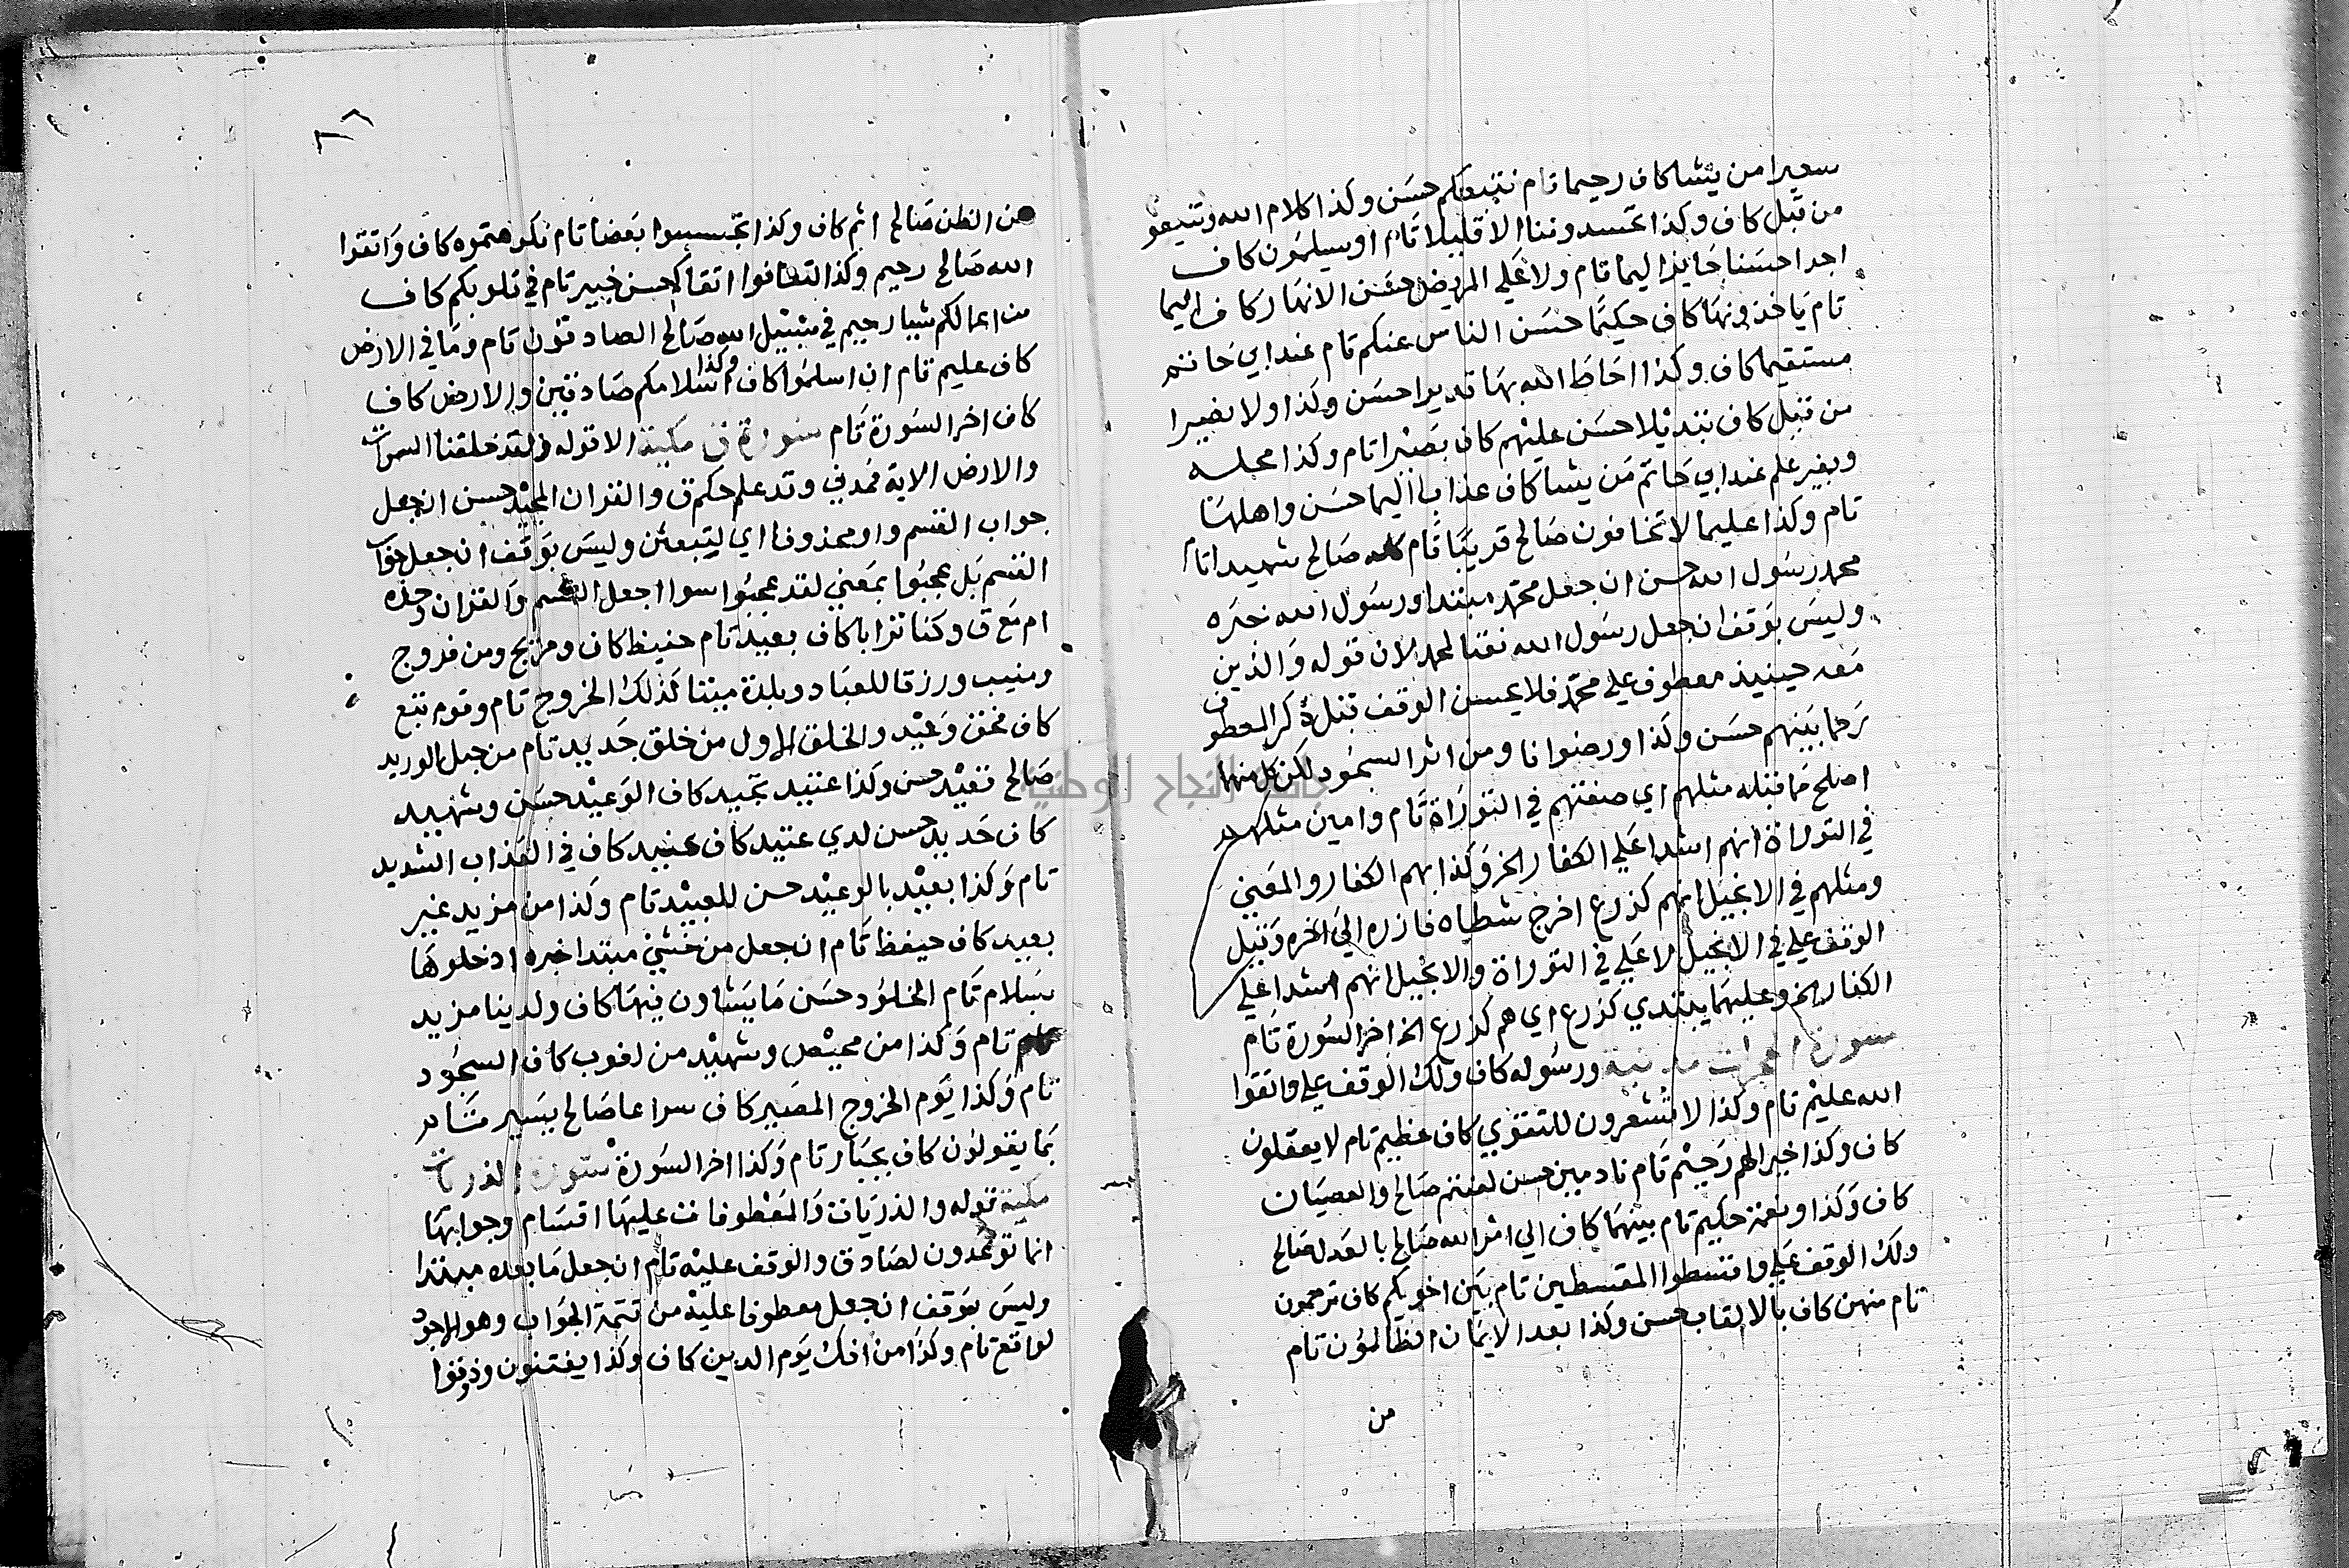 سعيرا من يشا كاف رحيما تام نتبعكم حسن وكذا كلام الله وتتبعو
من قبل كاف وكذا تحسدوننا الا قليلا تام او يسلمون كاف
اجرا حسنا جايز اليما تام ولا على المريض حسن الانهار كاف اليما
تام ياخذونها كاف حكيما حسن الناس عنكم تام عند ابي حاتم
مستقيما كاف وكذا احاط الله بها قديرا حسن وكذا ولا نصيرا
من قبل كاف تبديلا حسن عليهم كاف بصيرا تام وكذا محله
وبغير علم عند ابي حاتم من يشا كاف عذابا اليما حسن واهلها
تام وكذا عليما لا تخافون صالح قريبا تام كله صالح شهيدا تام
محمد رسول الله حسن ان جعل محمد مبتدا ورسول الله خبره
وليس بوقف ان جعل رسول الله نعتا لمحمد لان قوله والذين
معه حينيذ معطوف علي محمد فلا يحسن الوقف قبل ذكر المعطوف
رحما بينهم حسن وكذا ورضوانا ومن اثر السجود لكن كل منها
اصلح مما قبله مثلهم اي صفتهم في التوراة تام وامين مثلهم
في التوراة انهم اشدا علي الكفار الخ وكذا بهم الكفار والمعني
ومثلهم في الانجيل انهم كزرع اخرج شطاه فازره الي اخره وقيل
الوقف علي في الانجيل لا علي في التوراة والانجيل انهم اشدا علي
الكفار الخ وعليهما يبتدي كزرع اي هم كزرع الخ اخر السورة تام
سورة الحجرات مدنية ورسوله كاف ولك الوقف علي واتقوا
الله عليم تام وكذا لا تشعرون للتقوي كاف عظيم تام لا يعقلون
كاف وكذا خيرا لهم رحيم تام نادمين حسن لعنتم صالح والعصيان
كاف وكذا ونعمة حكيم تام بينهما كاف الي امر الله صالح بالعدل صالح
ولك الوقف علي واقسطوا المقسطين تام بين اخويكم كاف ترحمون
تام منهن كاف بالالقاب حسن وكذا بعد الايمان الظالمون تام
من
من الظن صالح اثم كاف وكذا تجسسوا بعضا تام فكرهتموه كاف واتقوا
الله صالح رحيم وكذا لتعارفوا اتقاكم حسن خبير تام في قلوبكم كاف
من اعمالكم شيا رحيم في سبيل الله صالح الصادقون تام وما في الارض
كاف عليم تام ان اسلموا كاف وكذا اسلامكم صادقين والارض كاف
كاف اخر السورة تام سورة ق مكية الا قوله ولقد خلقنا السموات
والارض الاية فمدني وقد علم حكم ق والقران المجيد حسن ان جعل
جواب القسم واو محذوفا اي لتبعثن وليس بوقف ان جعل جواب
القسم بل عجبوا بمعني لقد عجبوا سوا اجعل القسم والقران وحده
ام مع ق وكنا ترابا كاف بعيد تام حفيظ كاف ومريج ومن فروج
ومنيب ورزقا للعباد وبلدة ميتا كذلك الخروج تام وقوم تبع
كاف فحق وعيد والخلق الاول من خلق جديد تام من حبل الوريد
صالح قعيد حسن وكذا عتيد تحيد كاف الوعيد حسن وشهيد
كاف حديد حسن لدي عتيد كاف عنيد كاف في العذاب الشديد
تام وكذا بعيد بالوعيد حسن للعبيد تام وكذا من مزيد غير
بعيد كاف حيفظ تام ان جعل من خشي مبتدا خبره ادخلوها
بسلام تام الخلود حسن ما يشاون فيها كاف ولدينا مزيد
تام وكذا من محيص وشهيد من لغوب كاف السجود
تام وكذا يوم الخروج المصير كاف سراعا صالح يسير تام
بما يقولون كاف بجبار تام وكذا اخر السورة سورة الذريات
مكية قوله والذريات والمعطوفات عليها اقسام وجوابها
انما توعدون لصادق والوقف عليه تام ان جعل ما بعده مبتدا
وليس بوقف ان جعل معطوفا عليه من تتمة الجواب وهو الاجود
لواقع تام وكذا من افك يوم الدين كاف وكذا يفتنون وذوقوا
جامعة النجاح الوطنية